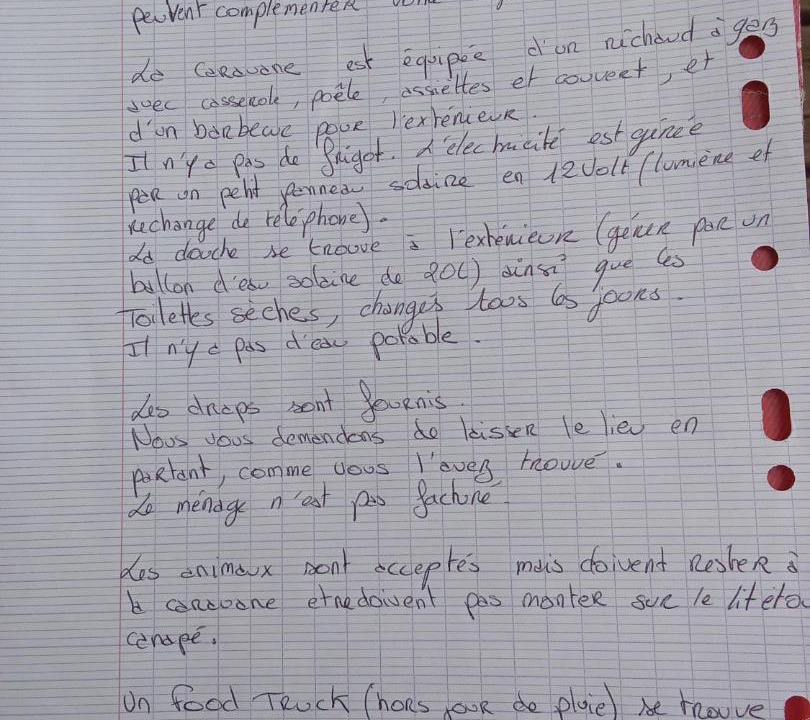 peuvent complementer
La caravane est équipée d'un réchaud à gaz
avec casserole, poêle, assiettes et couvert, et
d'un barbecue pour l'extérieur.
Il n'y a pas de frigot. L'électricité est gérée
par un petit panneau solaire en 12 Volt (lumière et
rechange de téléphone).
La douche se trouve à l'extérieur (gérer par un
ballon d'eau solaire de 20L) ainsi que les
Toilettes sèches, changés tous les jours.
Il n'y a pas d'eau potable.
Les draps sont fournis.
Nous vous demandons de laisser le lieu en
partant, comme vous l'avez trouvé.
Le ménage n'est pas facturé.
Les animaux sont acceptés mais doivent rester à
la caravane et ne doivent pas monter sur le lit et ou
canapé.
Un food Truck (hors jour de pluie) se trouve